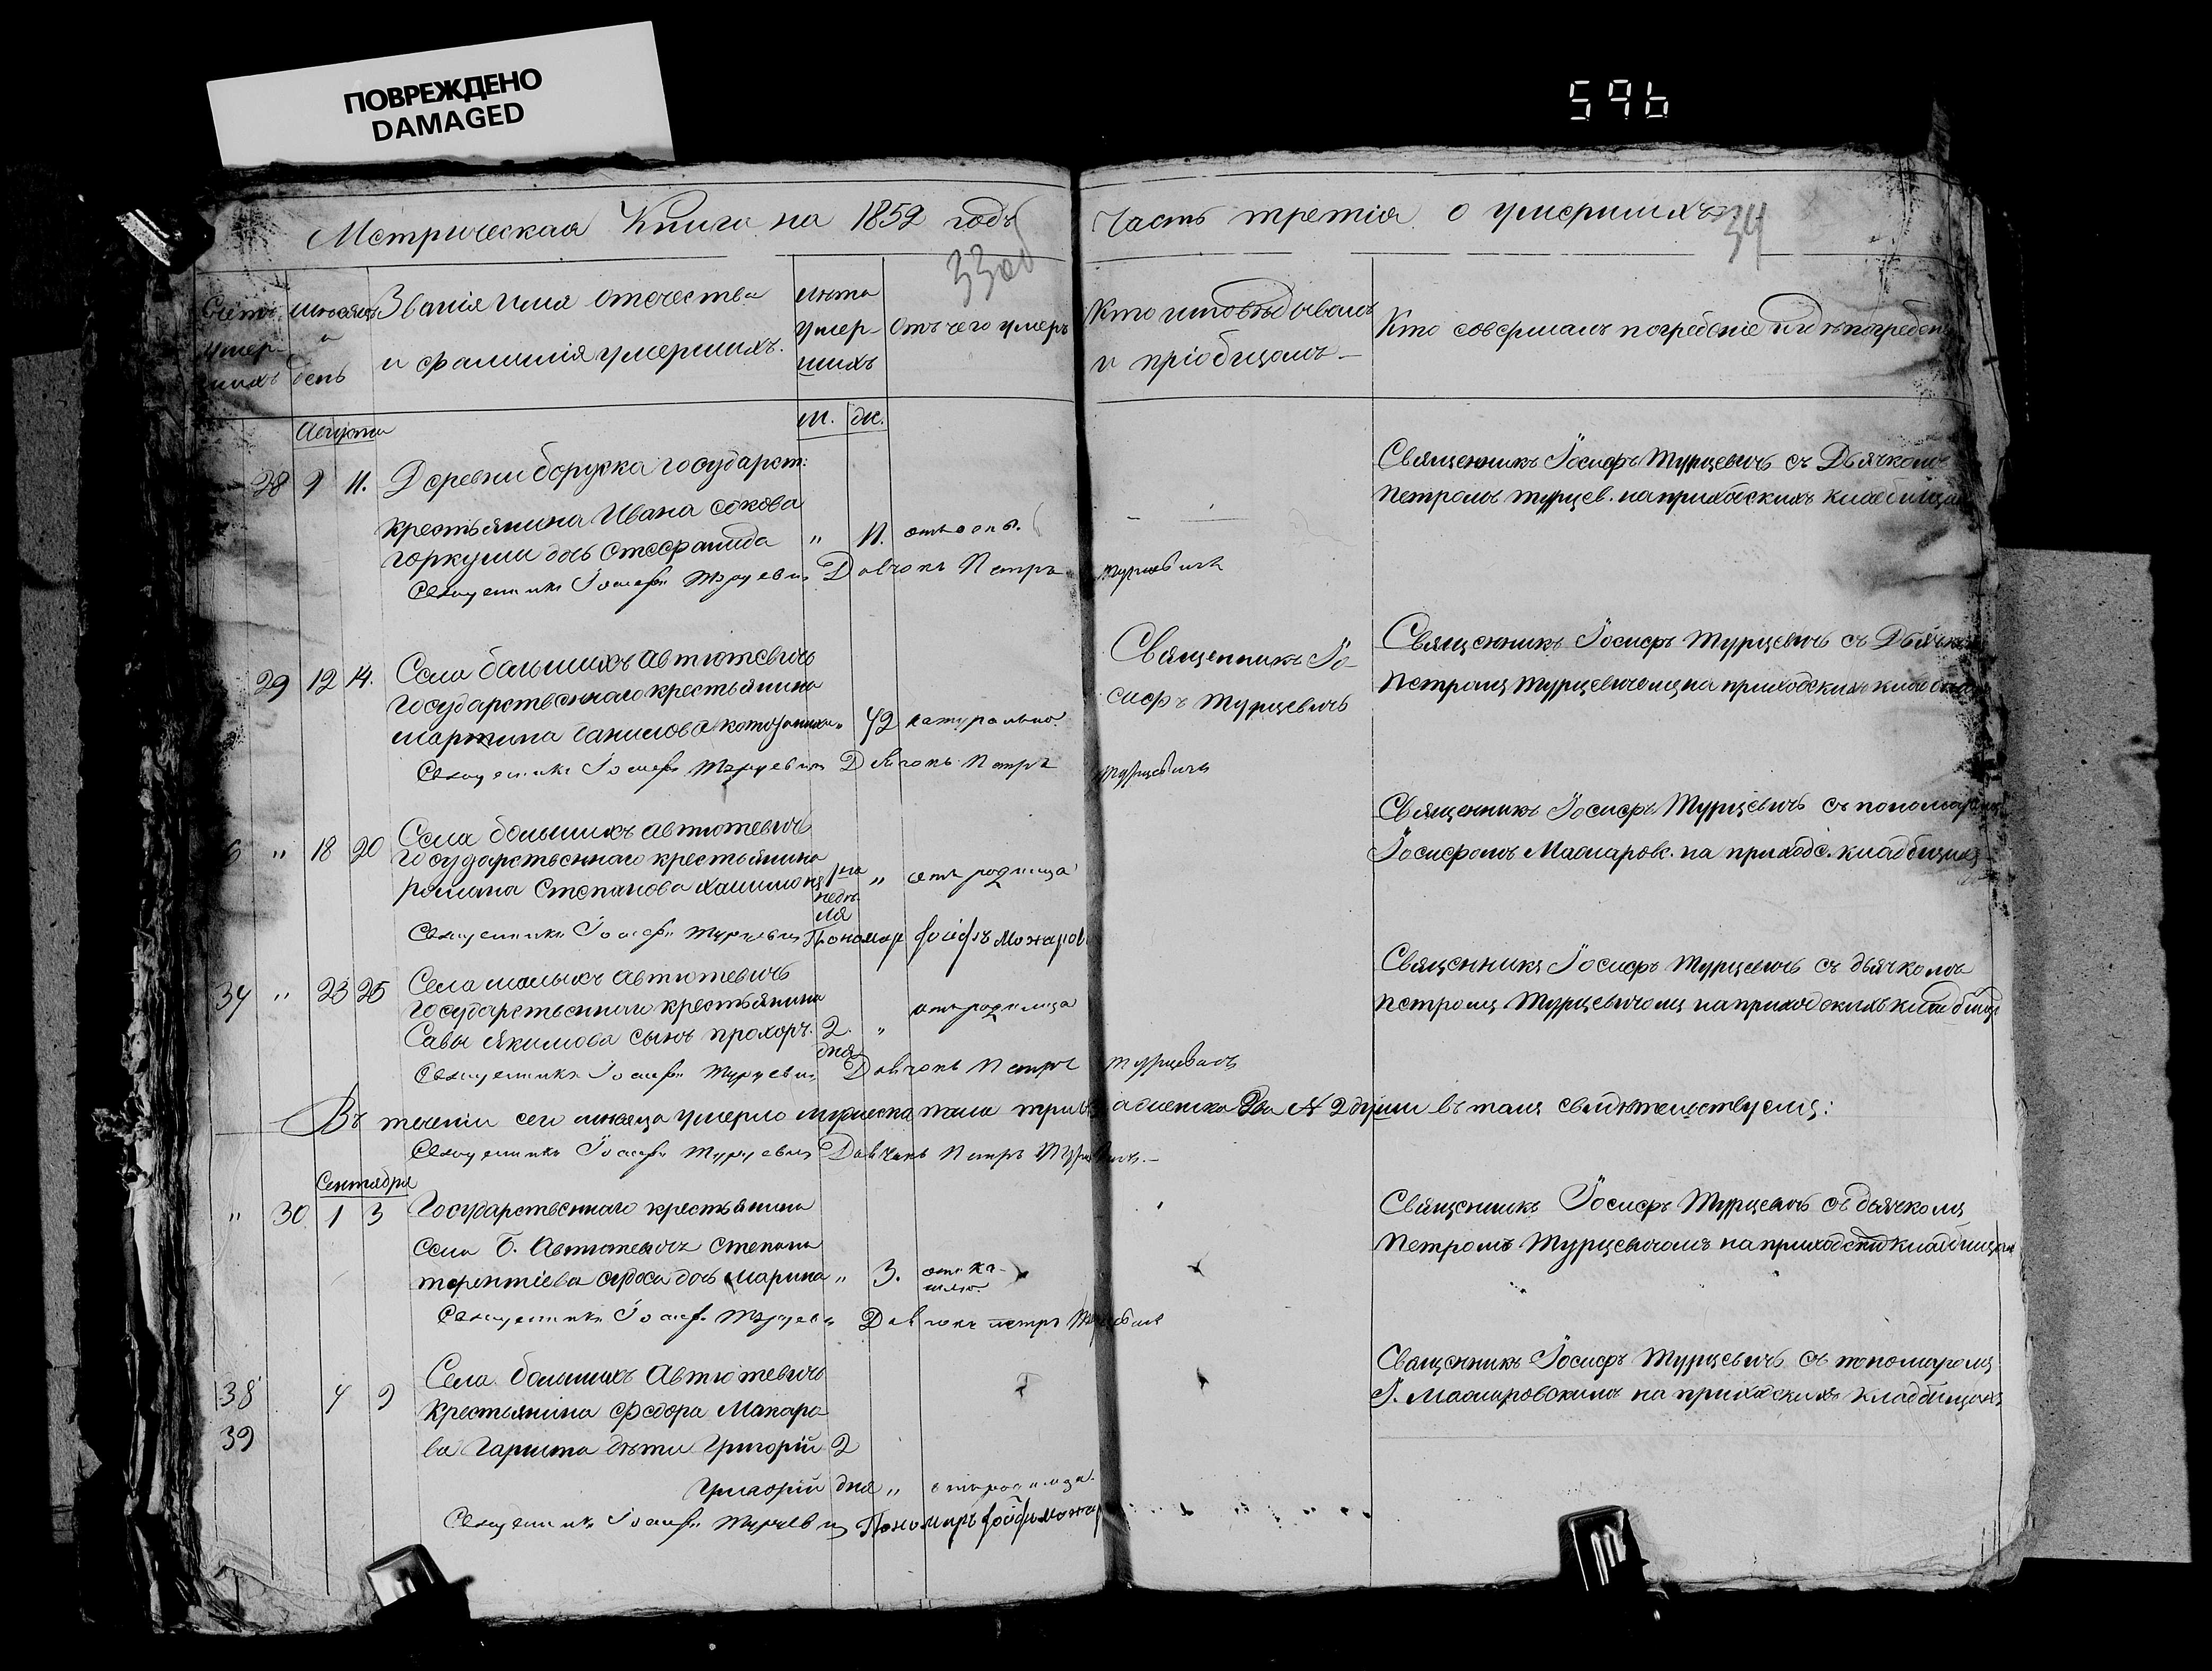 ПОВРЕЖДЕНО
DAMAGED
596
Метрическая Книга на 1852 годъ
Часть третія о умершихъ
33об
34
Счетъ умер- шихъ
мѣсяцъ и день
Званія имя отечества
и фамилія умершихъ.
лѣта умер- шихъ
отъ чего умеръ
Кто исповѣдывалъ
и пріобщалъ
Кто совершалъ погребеніе и гдѣ погребены
м. ж.
Августа
28 9 11. Деревни борука государст:
крестьянина Ивана
дочь Стефанида " 11. отъ оспы.
Священникъ Іосифъ Турцевичъ Дьячокъ Петръ Турцевичъ
Священникъ Іосифъ Турцевичъ съ Дьячкомъ
Петромъ Турцев. на приходскихъ кладбищахъ
29 12 14. Села большихъ Автютевичъ
Государственнаго крестьянина
мартина данилова " 42 натурально
Священникъ Іосифъ Турцевичъ Дьячокъ Петръ Турцевичъ
Священникъ Іо-
сифъ Турцевичъ
Священникъ Іосифъ Турцевичъ съ Дьячкомъ
Петромъ Турцевичемъ на приходскихъ кладбищахъ
" 18 20 Села большихъ Автютевичъ
Государственнаго крестьянина
романа Степанова недѣля " отъ родимца
Священникъ Іосифъ Турцевичъ Пономарь
Священникъ Іосифъ Турцевичъ съ пономаремъ
Іосифомъ на приходс. кладбищахъ
34 " 23 25 Села малыхъ Автютевичъ
Государственнаго крестьянина
Савы Якимова сынъ прохоръ. 2 дня " отъ родимца
Священникъ Іосифъ Турцевичъ Дьячокъ Петръ Турцевичъ
Священникъ Іосифъ Турцевичъ съ дьячкомъ
Петромъ Турцевичемъ на приходскихъ кладбищахъ
Въ теченіи сего мѣсяца умерло мужеска пола три а женска два души въ томъ свидѣтельствуемъ:
Священникъ Іосифъ Турцевичъ Дьячокъ Петръ Турцевичъ.
Сентября
" 30 1 3 Государственнаго крестьянина
села Б. Автютевичъ Степана
терентіева дочь Марина " 3. отъ ка- шлю.
Священникъ Іосифъ Турцевичъ Дьячокъ петръ Турцевичъ
Священникъ Іосифъ Турцевичъ съ дьячкомъ
Петромъ Турцевичомъ на приходскихъ кладбищахъ
38 4 9 Села большихъ Автютевичъ
39 Крестьянина Федора Макаро-
ва дѣти Григорій 2
Григорій дня " отъ родимца.
Священникъ Іосифъ Турцевичъ Пономарь
Священникъ Іосифъ Турцевичъ съ пономаромъ
І. на приходскихъ кладбищахъ